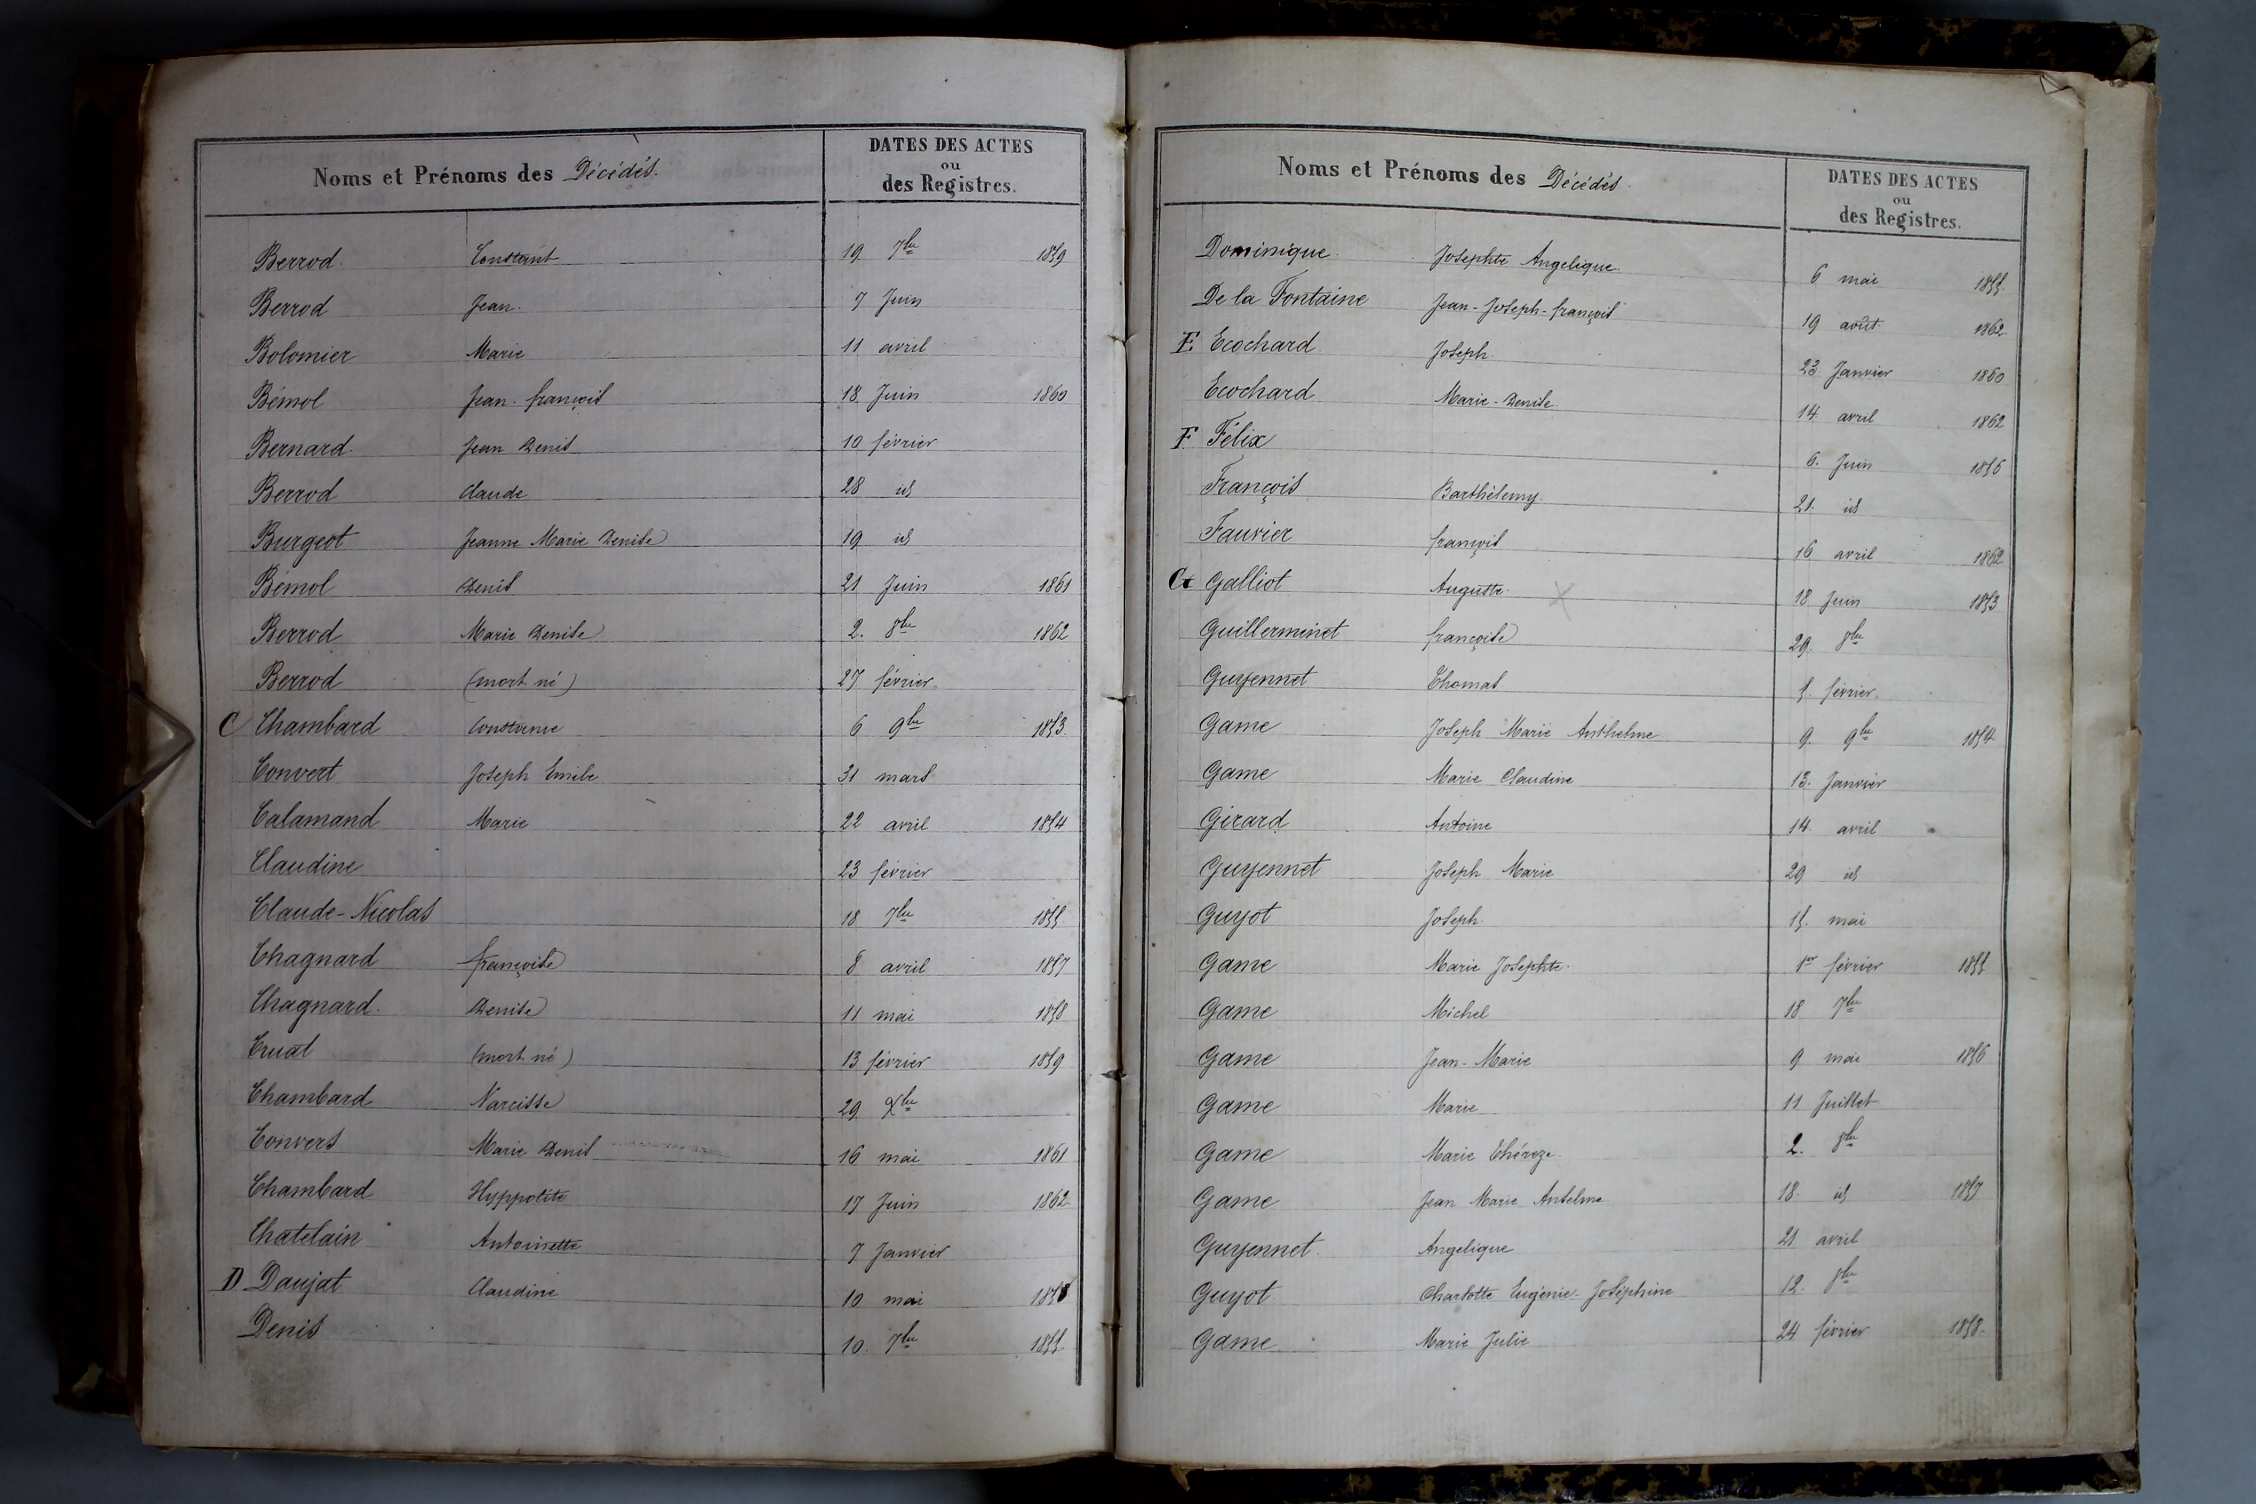 Noms et Prénoms des Décédés.
DATES DES ACTES
ou
des Registres.
Berrod Constant 19 7bre 1859
Berrod Jean. 7 Juin
Bolomier Marie 11 avril
Bémol Jean-françois 18 Juin 1860
Bernard Jean Denis 10 février
Berrod Claude 28 id
Burgeot Jeanne Marie Denise 19 id
Bémol Denis 21 Juin 1861
Berrod Marie Denise 2. 8bre 1862
Berrod (mort né) 27 février
C Chambard Constance 6 9bre 1853.
Convert Joseph Emile 31 mars
Calamand Marie 22 avril 1854
Claudine 23 février
Claude-Nicolas 18 7bre 1855
Chagnard françoise 8 avril 1857
Chagnard. Denise 11 mai 1858
Cruat (mort né) 13 février 1859
Chambard Narcisse 29 Xbre
Convers Marie Denis 16 mai 1861
Chambard Hyppolite 17 Juin 1862
Chatelain Antoinette 7 Janvier
D Daujat Claudine 10 mai 1858
Denis 10. 7bre 1855.
Noms et Prénoms des Décédés.
DATES DES ACTES
ou
des Registres.
Dominique Josephte Angelique 6 mai 1855.
De la Fontaine Jean-Joseph-françois 19 août 1862
E Ecochard Joseph 23 Janvier 1860
Ecochard Marie-Denise 14 avril 1862
F Félix 6. Juin 1856
François Barthélemy 21. id
Fauvier françois 16 avril 1862
G Galliot Auguste 18 Juin 1853
Guillerminet françoise 29. 8bre
Guyennet Thomas 5. février.
Game Joseph Marie Anthelme 9. 9bre 1854
Game Marie Claudine 13. Janvier
Girard Antoine 14. avril
Guyennet Joseph Marie 29 id
Guyot Joseph 15. mai
Game Marie Josephte. 1er février 1855
Game Michel 18 7bre
Game Jean-Marie 9 mai 1856
Game Marie 11 Juillet
Game Marie Thérèze. 2. 8bre
Game Jean Marie Antelme 18. id 1857
Guyennet. Angelique 21 avril
Guyot Charlotte Eugénie-Joséphine 12. 8bre
Game Marie Julie 24 février 1858.